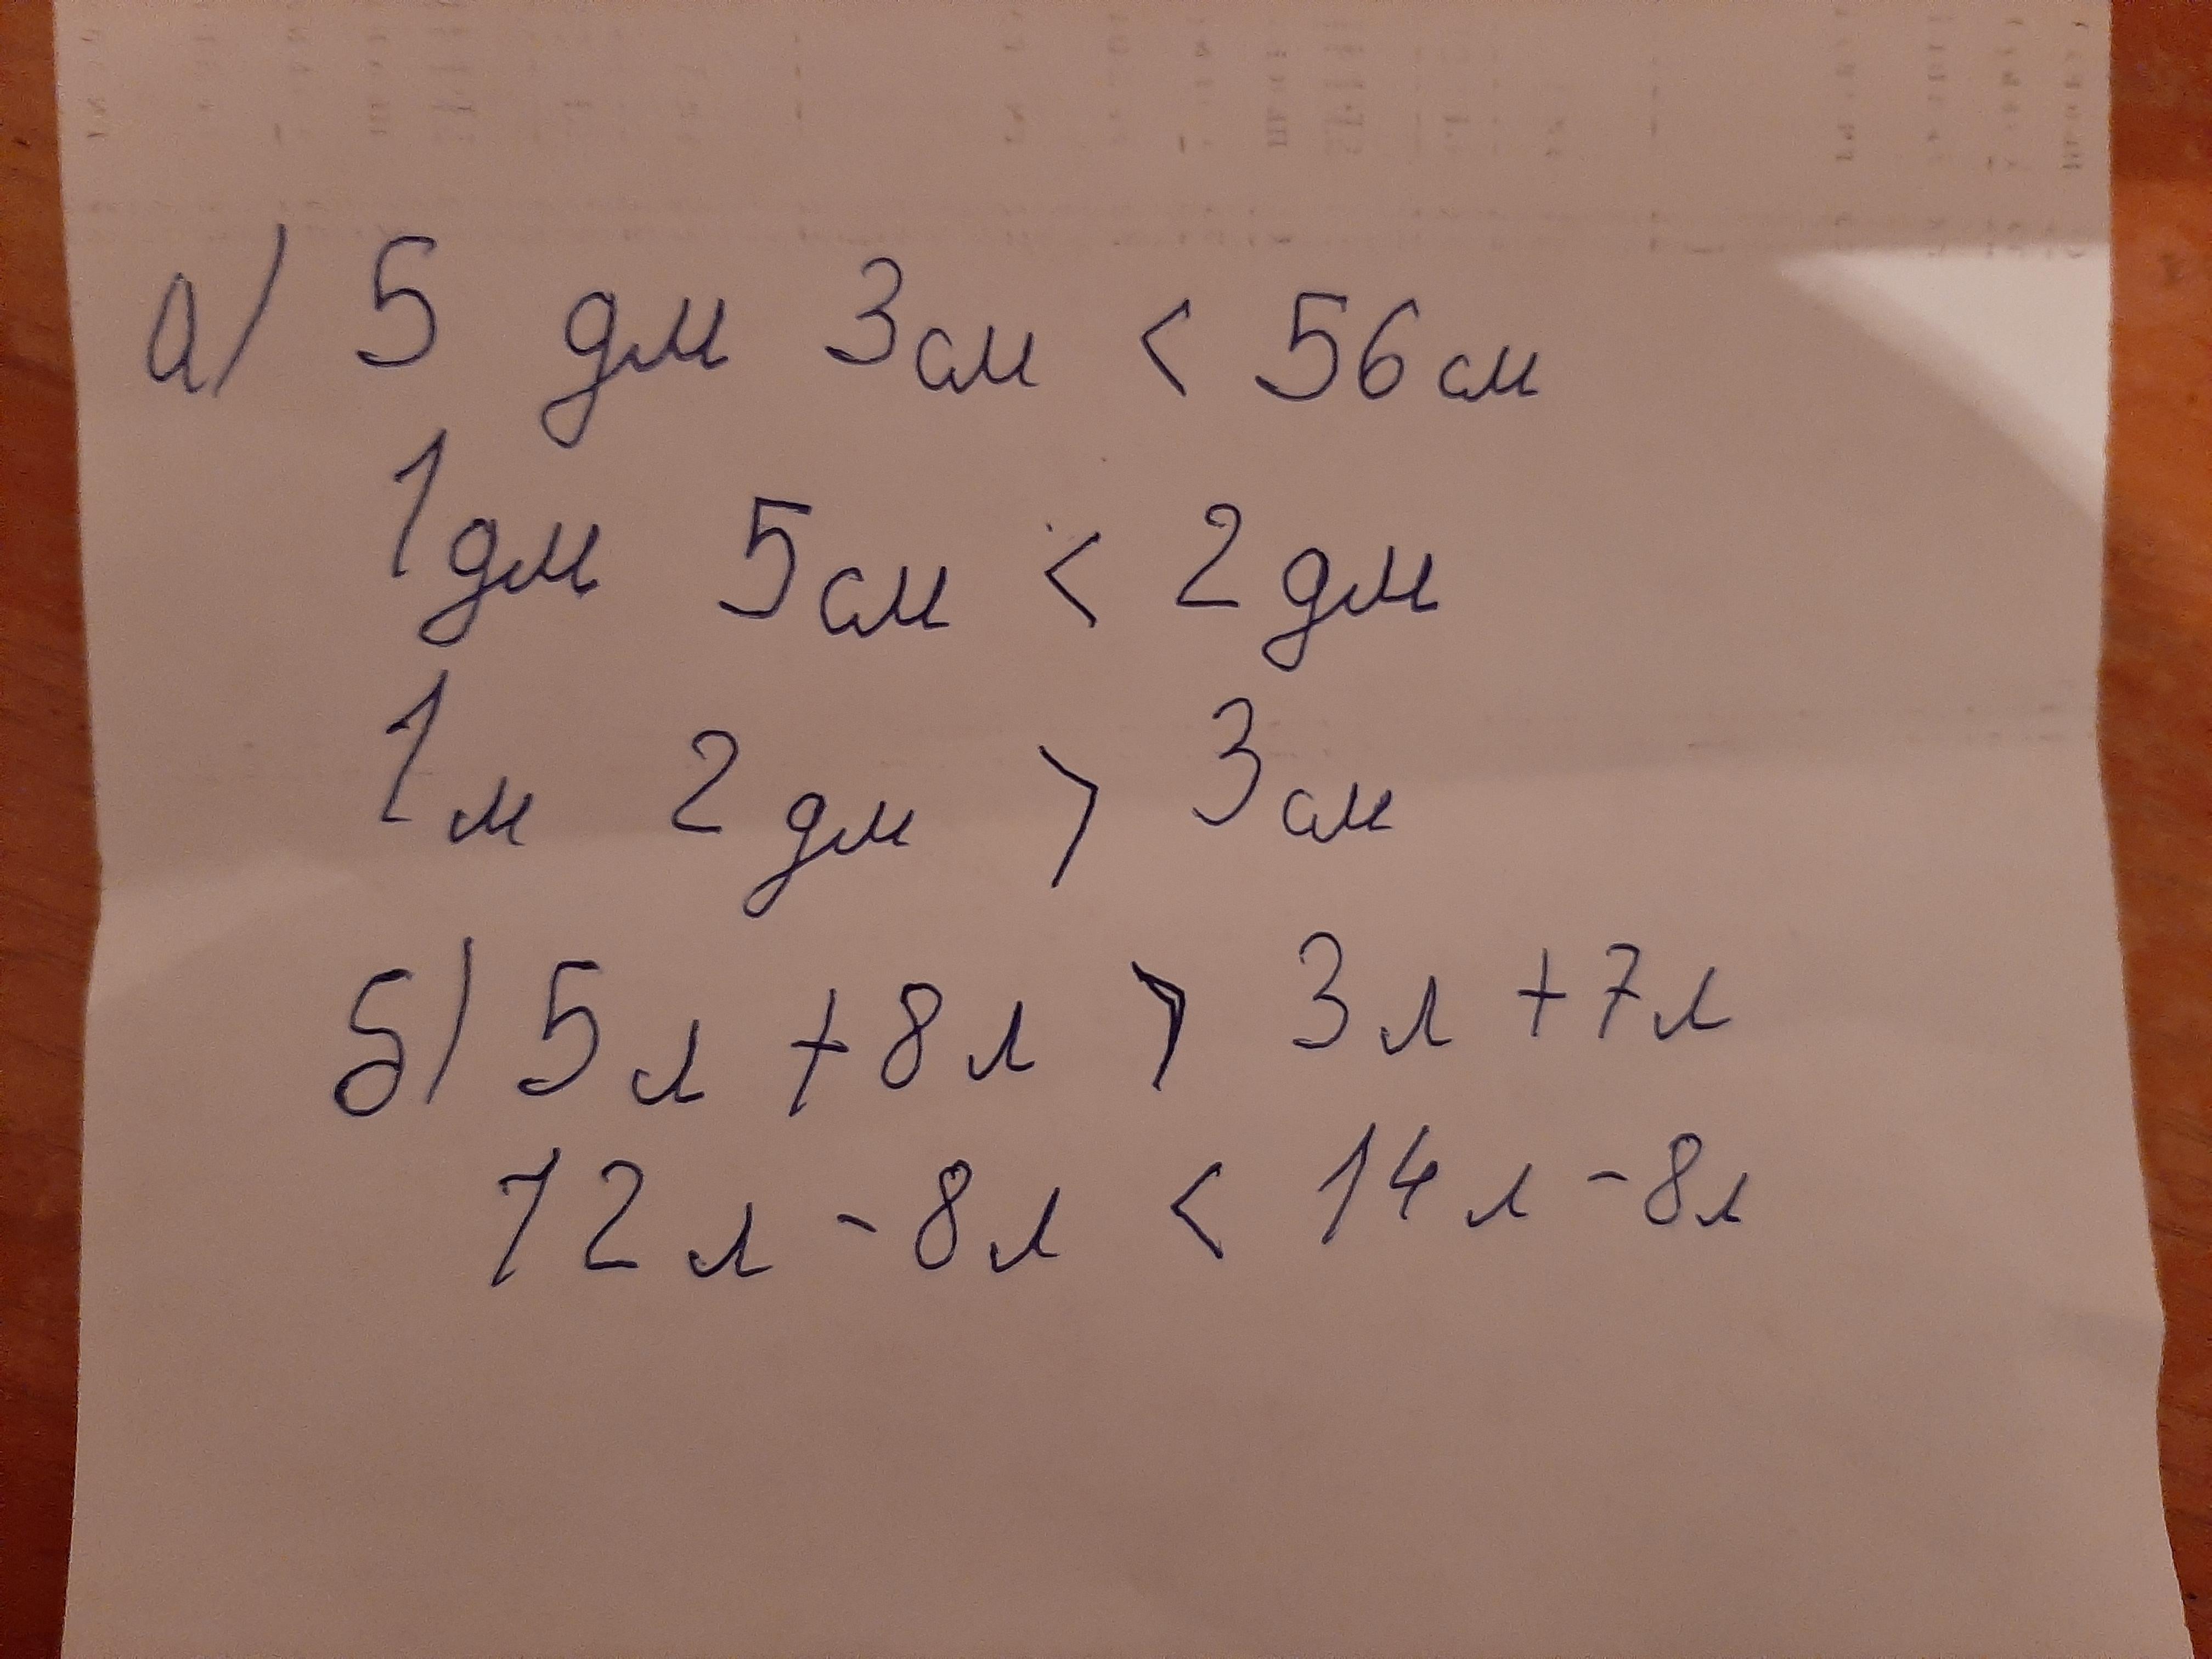 а) 5 дм 3 см < 56 см
1 дм 5 см < 2 дм
1 м 2 дм > 3 см
б) 5 л + 8 л > 3 л + 7 л
12 л - 8 л < 14 л - 8 л